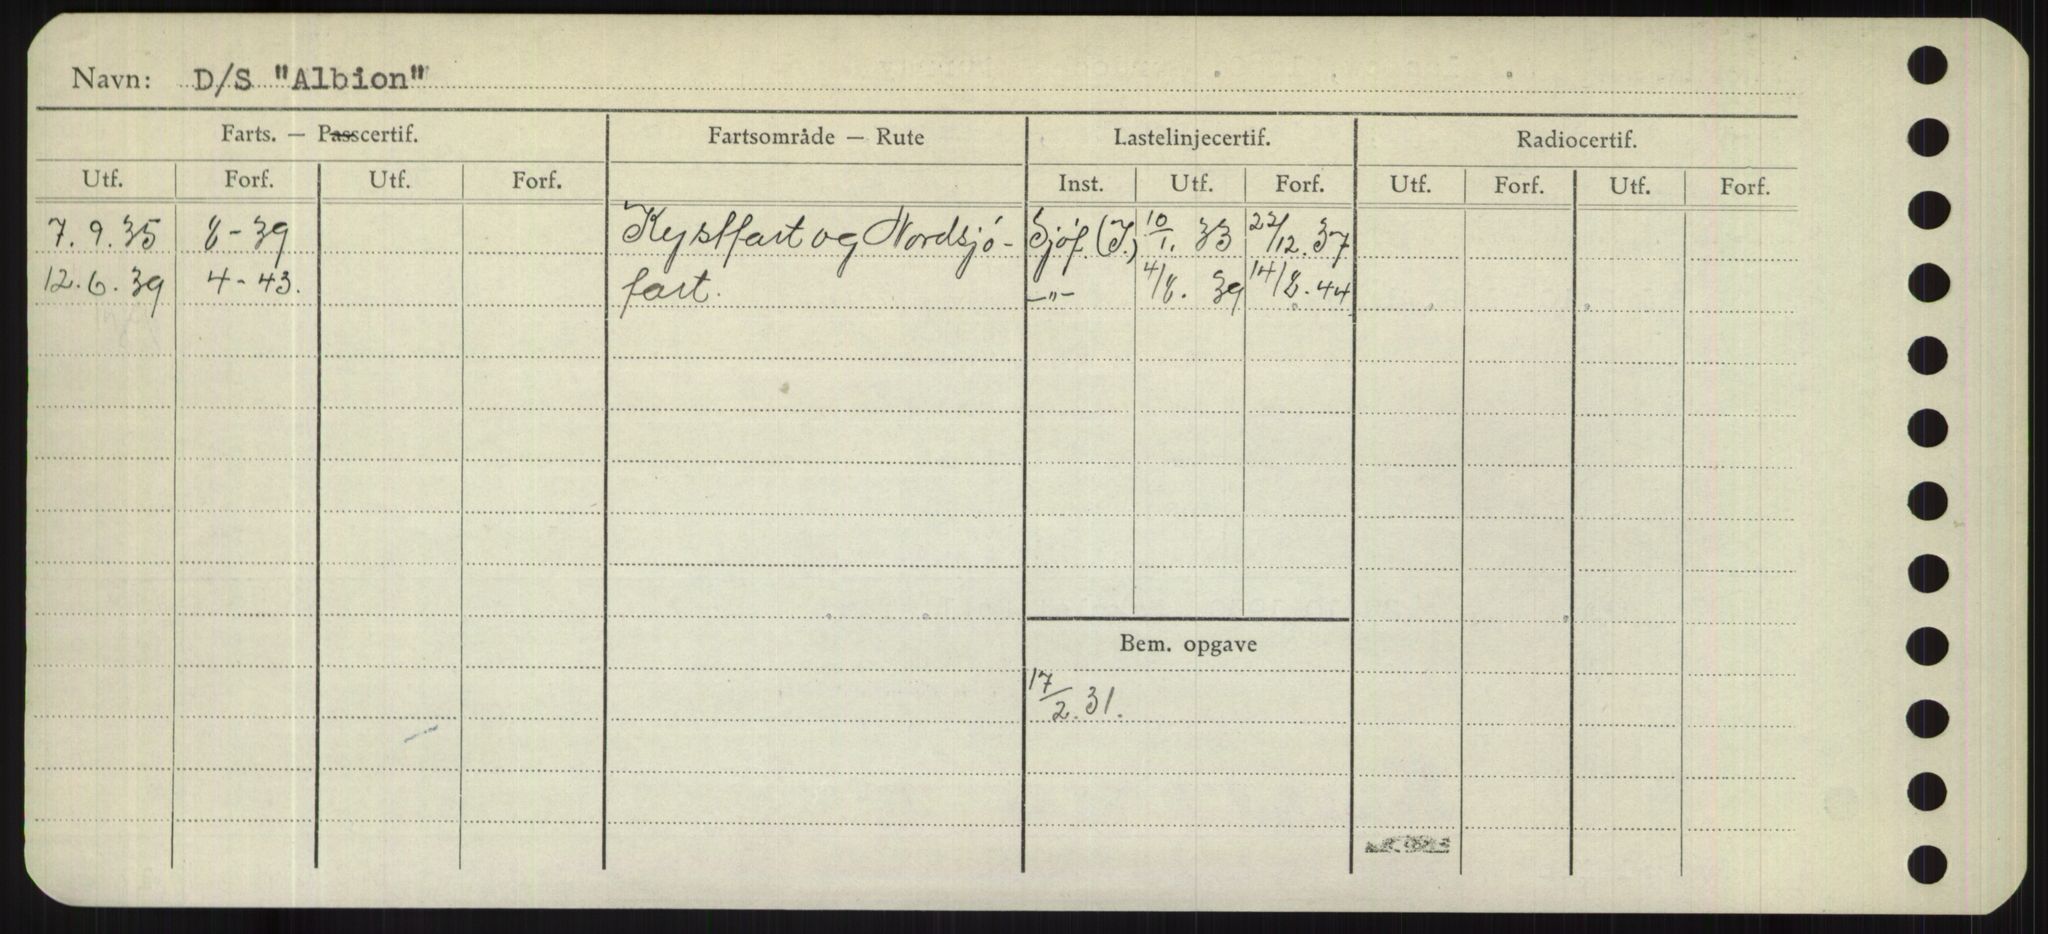 Navn: D/S "Albion"
Farts. — Passcertif. Fartsområde — Rute Lastelinjecertif. Radiocertif.
Utf. Forf. Utf. Forf. Inst. Utf. Forf. Utf. Forf. Utf. Forf.
7.9.35 8-39 Kystfart og Nordsjø- Sjöf. (I.) 10/1. 33 22/12. 37
12.6.39 4-43. fart. -"- 4/8. 39 14/8. 44
Bem. opgave
17/2. 31.